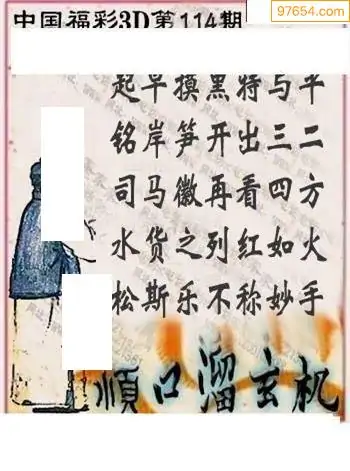 97654.com
中国福彩3D第114期
起早摸黑特与平
铭岸笋开出三二
司马徽再看四方
水货之列红如火
松斯乐不称妙手
順口溜玄机